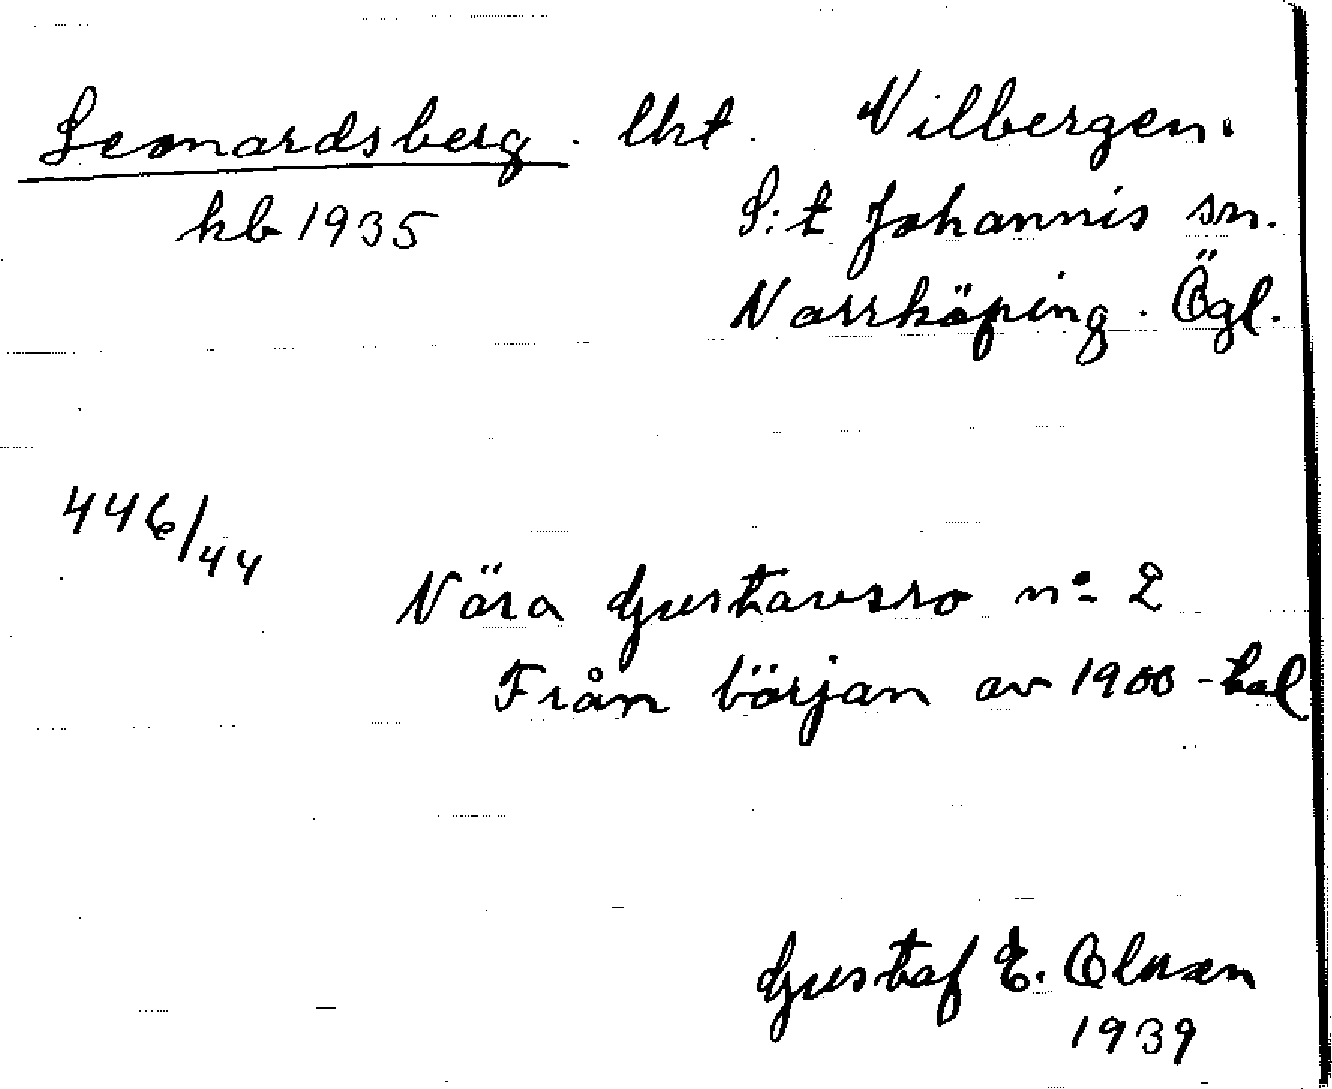 Leonardsberg. lht. Vilbergen.
kb 1935
S:t Johannis sn.
Norrköping. Ögl.
446/44
Nära Gustavsro no 2
Från början av 1900-tal
Gustaf E. Olsson
1939